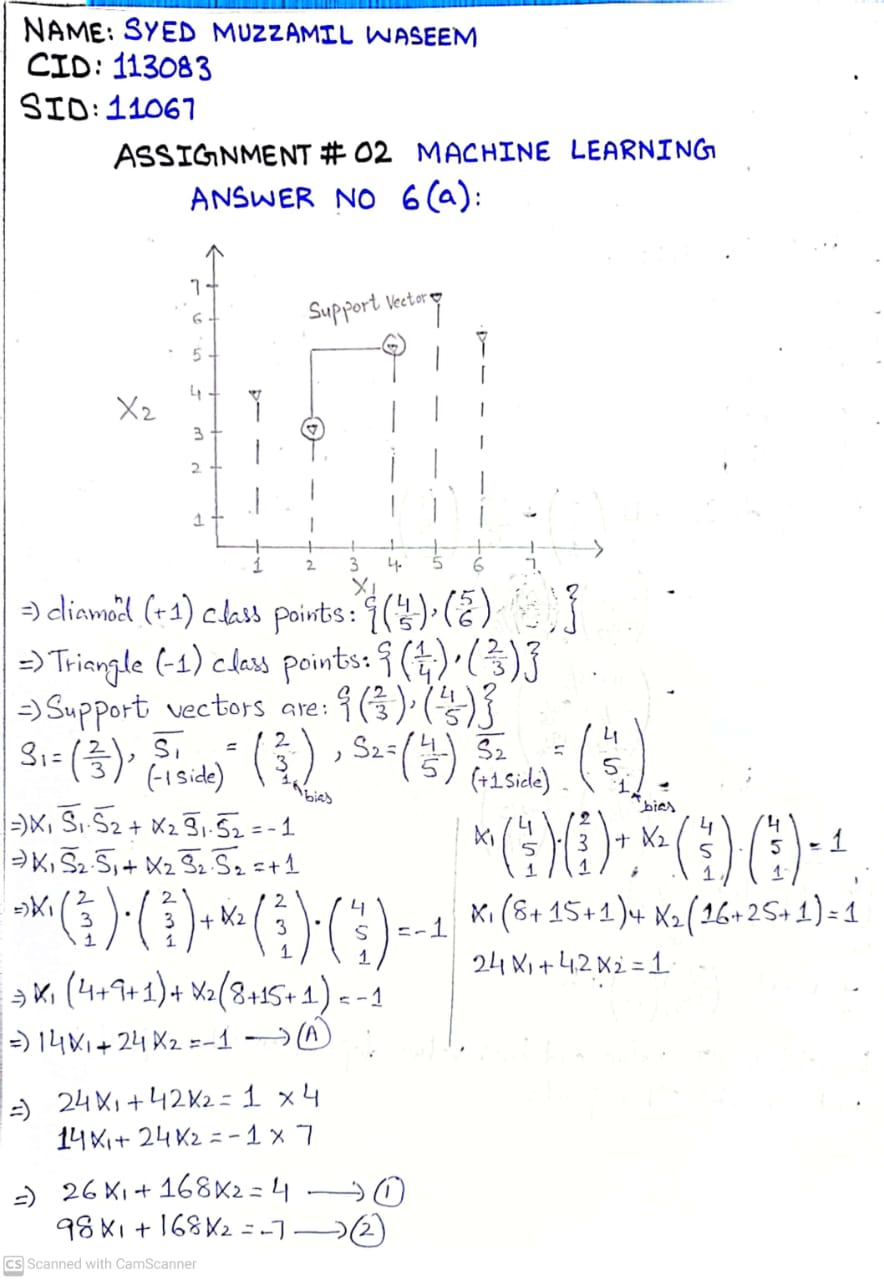 NAME: SYED MUZZAMIL WASEEM
CID: 113083
SID: 11067
ASSIGNMENT # 02 MACHINE LEARNING
ANSWER NO 6(a):
7
6
5
4
3
2
1
X2
Support Vector
1 2 3 4 5 6 7
X1
⇒ diamond (+1) class points: {(4 5), (5 6) , }
⇒ Triangle (-1) class points: {(1 4), (2 3)}
⇒ Support vectors are: {(2 3), (4 5)}
S1 = (2 3), S̅1 (-1 side) = (2 3 1) bias, S2 = (4 5) S̅2 (+1 side) = (4 5 1) bias
⇒ ∝1 S̅1·S̅2 + ∝2 S̅1·S̅2 = -1
⇒ ∝1 S̅2·S̅1 + ∝2 S̅2·S̅2 = +1
⇒ ∝1 (2 3 1)·(2 3 1) + ∝2 (2 3 1)·(4 5 1) = -1
⇒ ∝1 (4+9+1) + ∝2 (8+15+1) = -1
⇒ 14∝1 + 24∝2 = -1 → (A)
∝1 (4 5 1)·(2 3 1) + ∝2 (4 5 1)·(4 5 1) = 1
∝1 (8+15+1) + ∝2 (16+25+1) = 1
24∝1 + 42∝2 = 1
⇒ 24∝1 + 42∝2 = 1 x 4
14∝1 + 24∝2 = -1 x 7
⇒ 26∝1 + 168∝2 = 4 → (1)
98∝1 + 168∝2 = -7 → (2)
CS Scanned with CamScanner